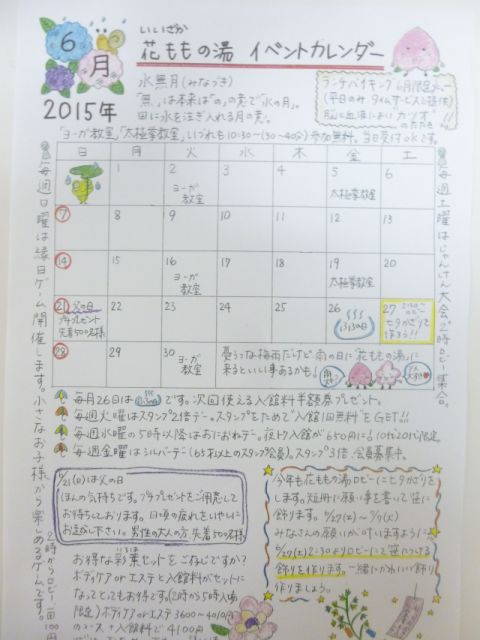 6月
いいざか
花ももの湯 イベントカレンダー
2015年
水無月(みなづき)
"無"は本来は"の"の意で"水の月"。
田に水を注ぎ入れる月の意。
ランチバイキング 6月限定メニュー
(平日のみ タイムサービスは除く)
脳と血液によい
「ヨーガ教室」「太極拳教室」いづれも10:30〜(30〜40分)参加無料。当日受付OKです。
日 月 火 水 木 金 土
1 2 ヨーガ教室 3 4 5 太極拳教室 6
7 8 9 10 11 12 13
14 15 16 ヨーガ教室 17 18 19 太極拳教室 20
21 父の日 プチプレゼント 先着50名様 22 23 24 25 26 ふろの日 27 2:30〜ロビー 七夕かざりを作ろう!!
28 29 30 ヨーガ教室
憂うつな梅雨だけど雨の日に「花ももの湯」に
来るといい事あるかも!
毎週日曜は縁日ゲーム開催します。小さなお子様から楽しめるゲームです。
2時からロビー 1回100円
毎週土曜はじゃんけん大会。2時ロビー集合。
毎月26日は ふろの日 です。次回使える入館料半額券プレゼント。
毎週火曜はスタンプ2倍デー。スタンプをためて"入館1回無料"をGET!!
毎週水曜の5時以降はおにおねデー。夜トク入館が650円に!
毎週金曜はシルバーデー(65才以上のスタンプ会員)。スタンプ3倍 会員募集中。
6/21(日)は父の日
ほんの気持ちです。プチプレゼントをご用意して
お待ちしております。日頃の疲れをいやしに
お越し下さい。男性の大人の方 先着50名様
お得な彩葉セットをご存じですか?
ボディケア or エステと入館料がセットに
なってとってもお得です。(2時から5時入場
限定)ボディケア or エステ 3600〜4010円
のコース+入館料で 4100円
今年も花ももの湯ロビーに七夕かざりを
します。短冊に願い事を書いて笹に
飾ります。6/27(土)〜7/7(火)
みなさんの願いが叶いますように
6/27(土)2:30よりロビーにて笹につける
飾りを作ります。一緒にかわいい飾り
作りましょう。